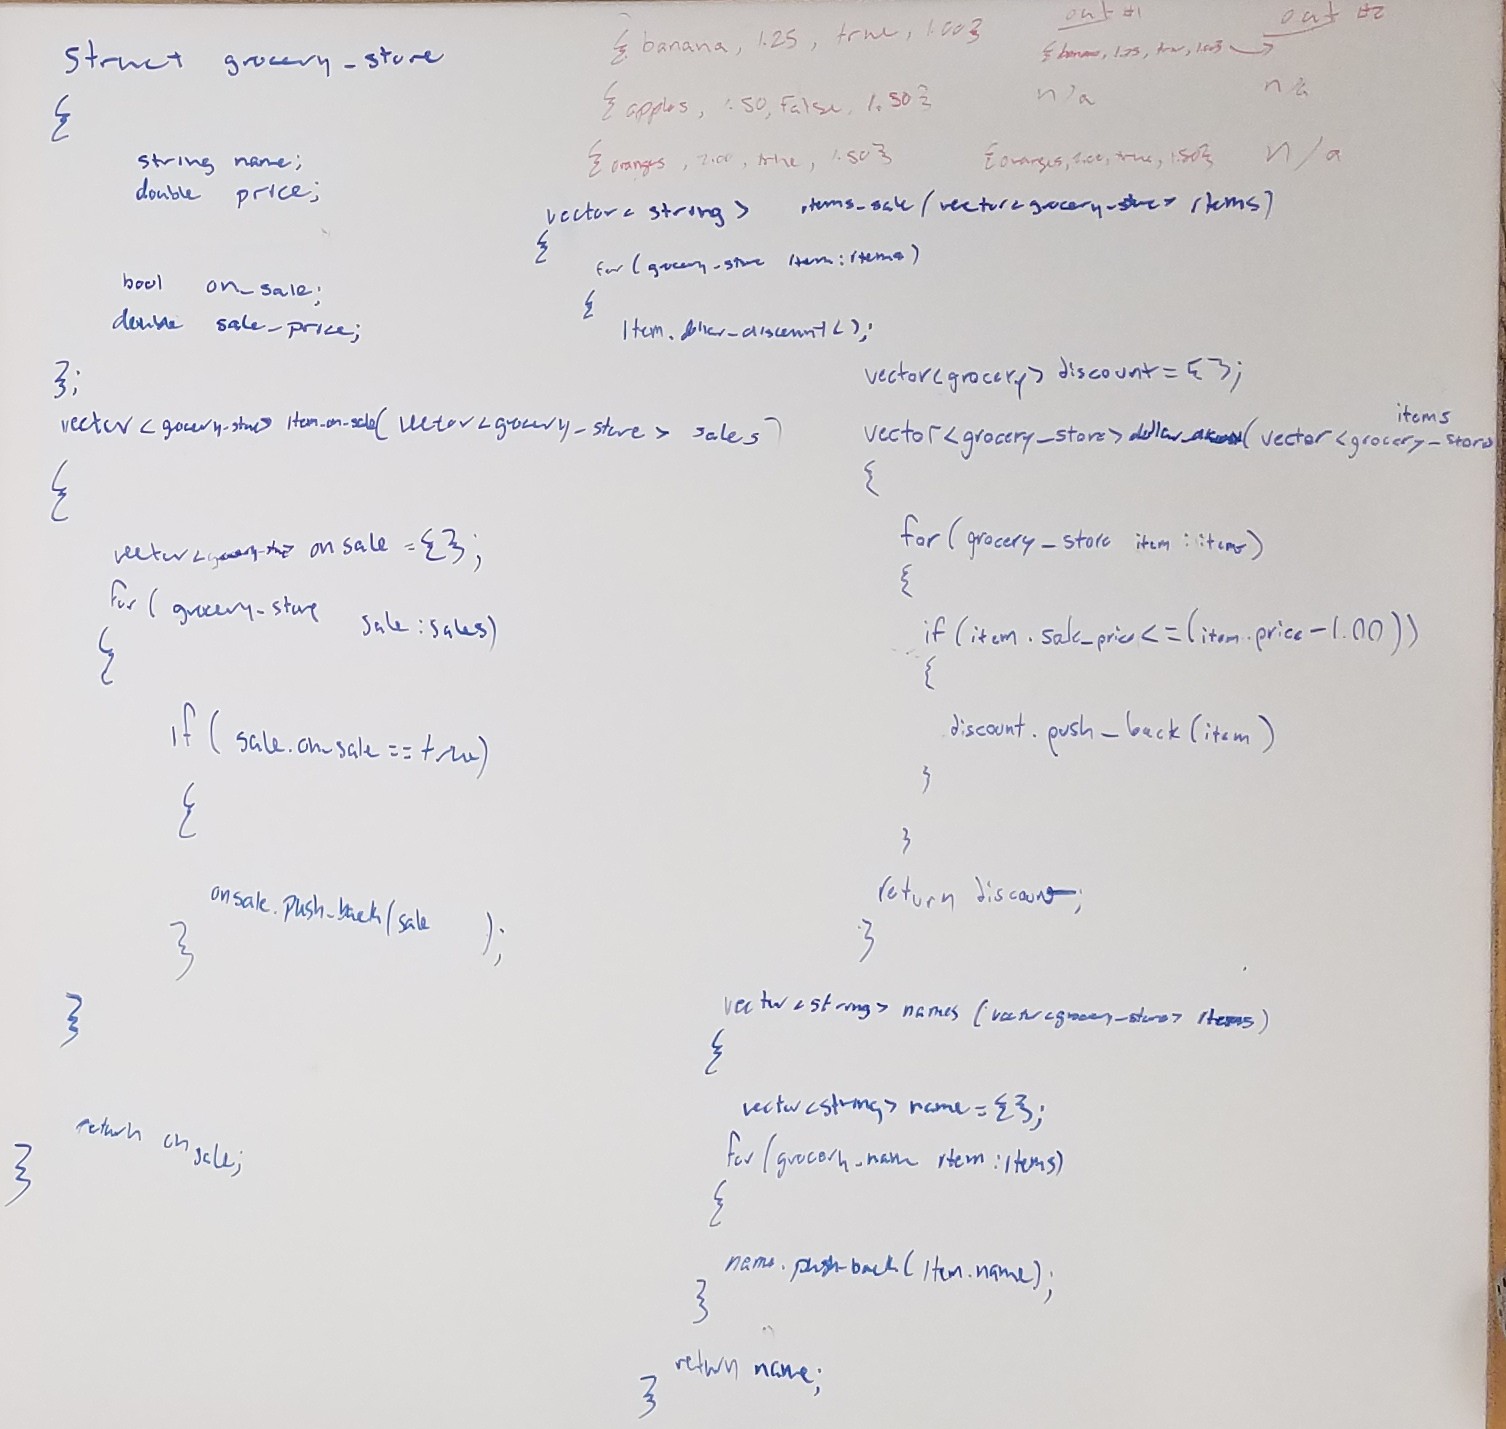 struct grocery_store
{
string name;
double price;
bool on_sale;
double sale_price;
};
out #1 out #2
{banana, 1.25, true, 1.00}
{banana, 1.25, true, 1.00}
{apples, 1.50, False, 1.50} n/a n/a
{oranges, 2.00, true, 1.50} {oranges, 2.00, true, 1.50} n/a
vector<string> items_sale(vector<grocery_store> items)
{
for (grocery_store item : items)
{
item. _discount();
vector<grocery_store> item_on_sale( vector<grocery_store> sales)
{
vector<grocery_store> onsale = {};
for ( grocery_store sale : sales)
{
if ( sale.on_sale == true)
{
onsale.push_back(sale );
}
}
return onsale;
}
vector<grocery> discount = {};
items
vector<grocery_store> dollar_ (vector<grocery_store
{
for (grocery_store item : items)
{
if (item.sale_price <= (item.price - 1.00))
{
discount.push_back(item)
}
}
return discount;
}
vector<string> names (vector<grocery_store> items)
{
vector<string> name = {};
for (grocery_name item : items)
{
name.push_back( item.name);
}
return name;
}